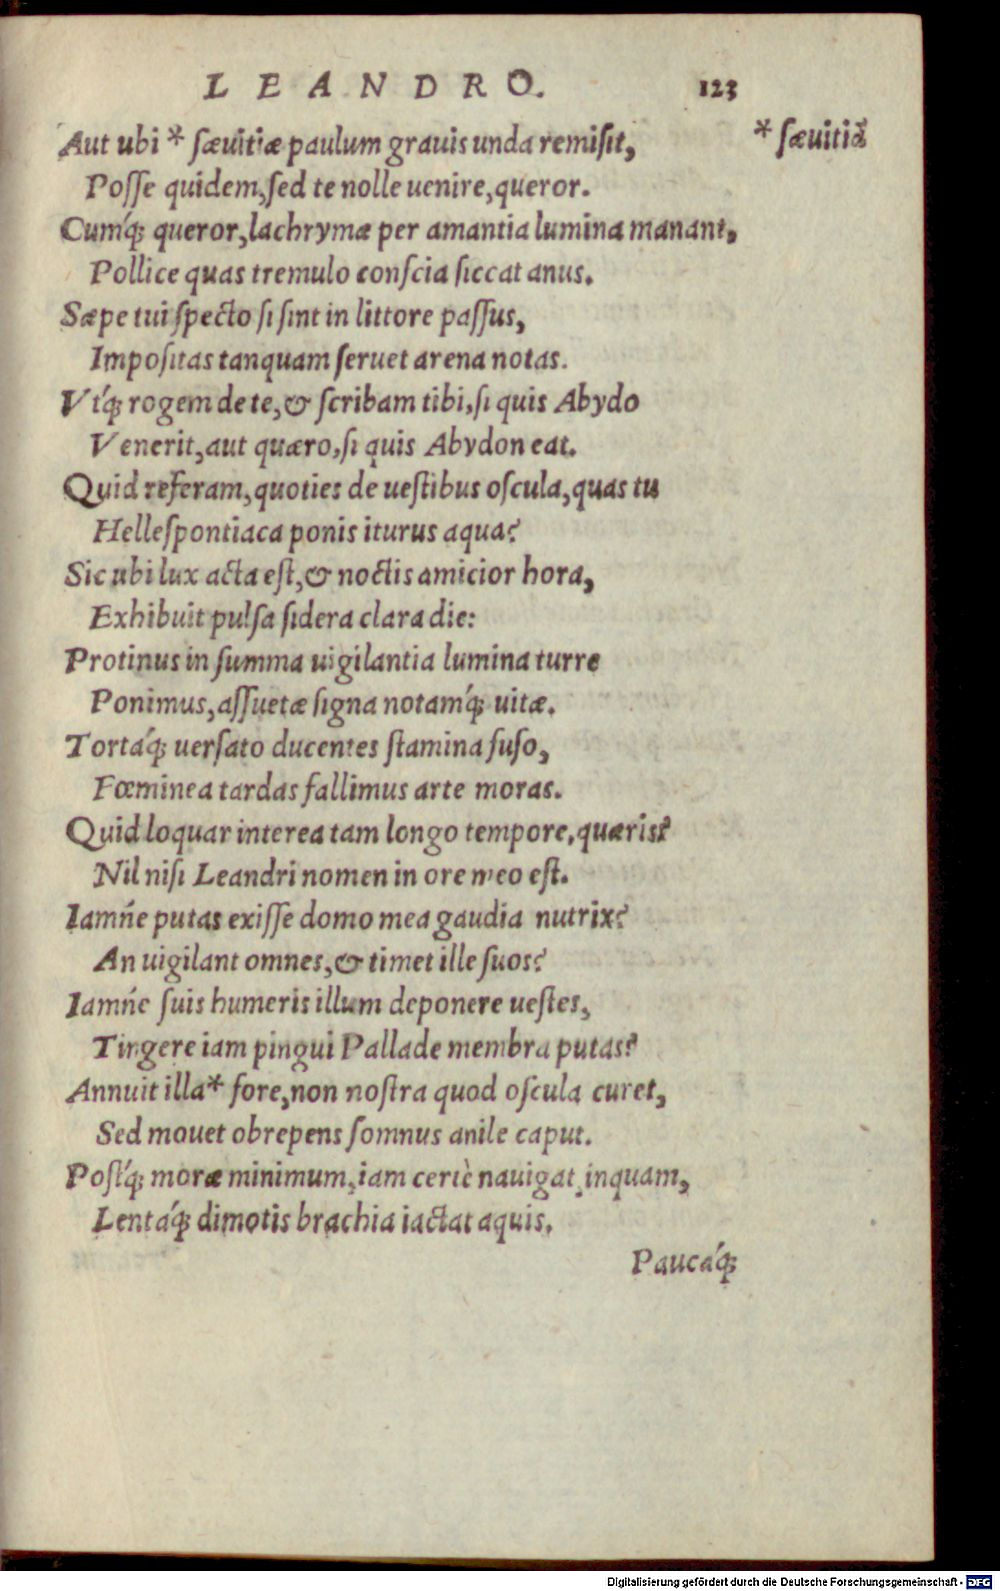 LEANDRO. 123
Aut ubi * sæuitiæ paulum grauis unda remisit, * sæuitiã
Posse quidem, sed te nolle uenire, queror.
Cumq́; queror, lachrymæ per amantia lumina manant,
Pollice quas tremulo conscia siccat anus.
Sæpe tui specto si sint in littore passus,
Impositas tanquam seruet arena notas.
Vtq́; rogem de te, & scribam tibi, si quis Abydo
Venerit, aut quæro, si quis Abydon eat.
Quid referam, quoties de uestibus oscula, quas tu
Hellespontiaca ponis iturus aqua?
Sic ubi lux acta est, & noctis amicior hora,
Exhibuit pulsa sidera clara die:
Protinus in summa uigilantia lumina turre
Ponimus, assuetæ signa notamq́; uitæ.
Tortaq́; uersato ducentes stamina fuso,
Fœminea tardas fallimus arte moras.
Quid loquar interea tam longo tempore, quæris?
Nil nisi Leandri nomen in ore meo est.
Iamńe putas exisse domo mea gaudia nutrix?
An uigilant omnes, & timet ille suos?
Iamńe suis humeris illum deponere uestes,
Tingere iam pingui Pallade membra putas?
Annuit illa* fore, non nostra quod oscula curet,
Sed mouet obrepens somnus anile caput.
Postq́; moræ minimum, iam certè nauigat, inquam,
Lentaq́; dimotis brachia iactat aquis.
Paucaq́;
Digitalisierung gefördert durch die Deutsche Forschungsgemeinschaft - DFG